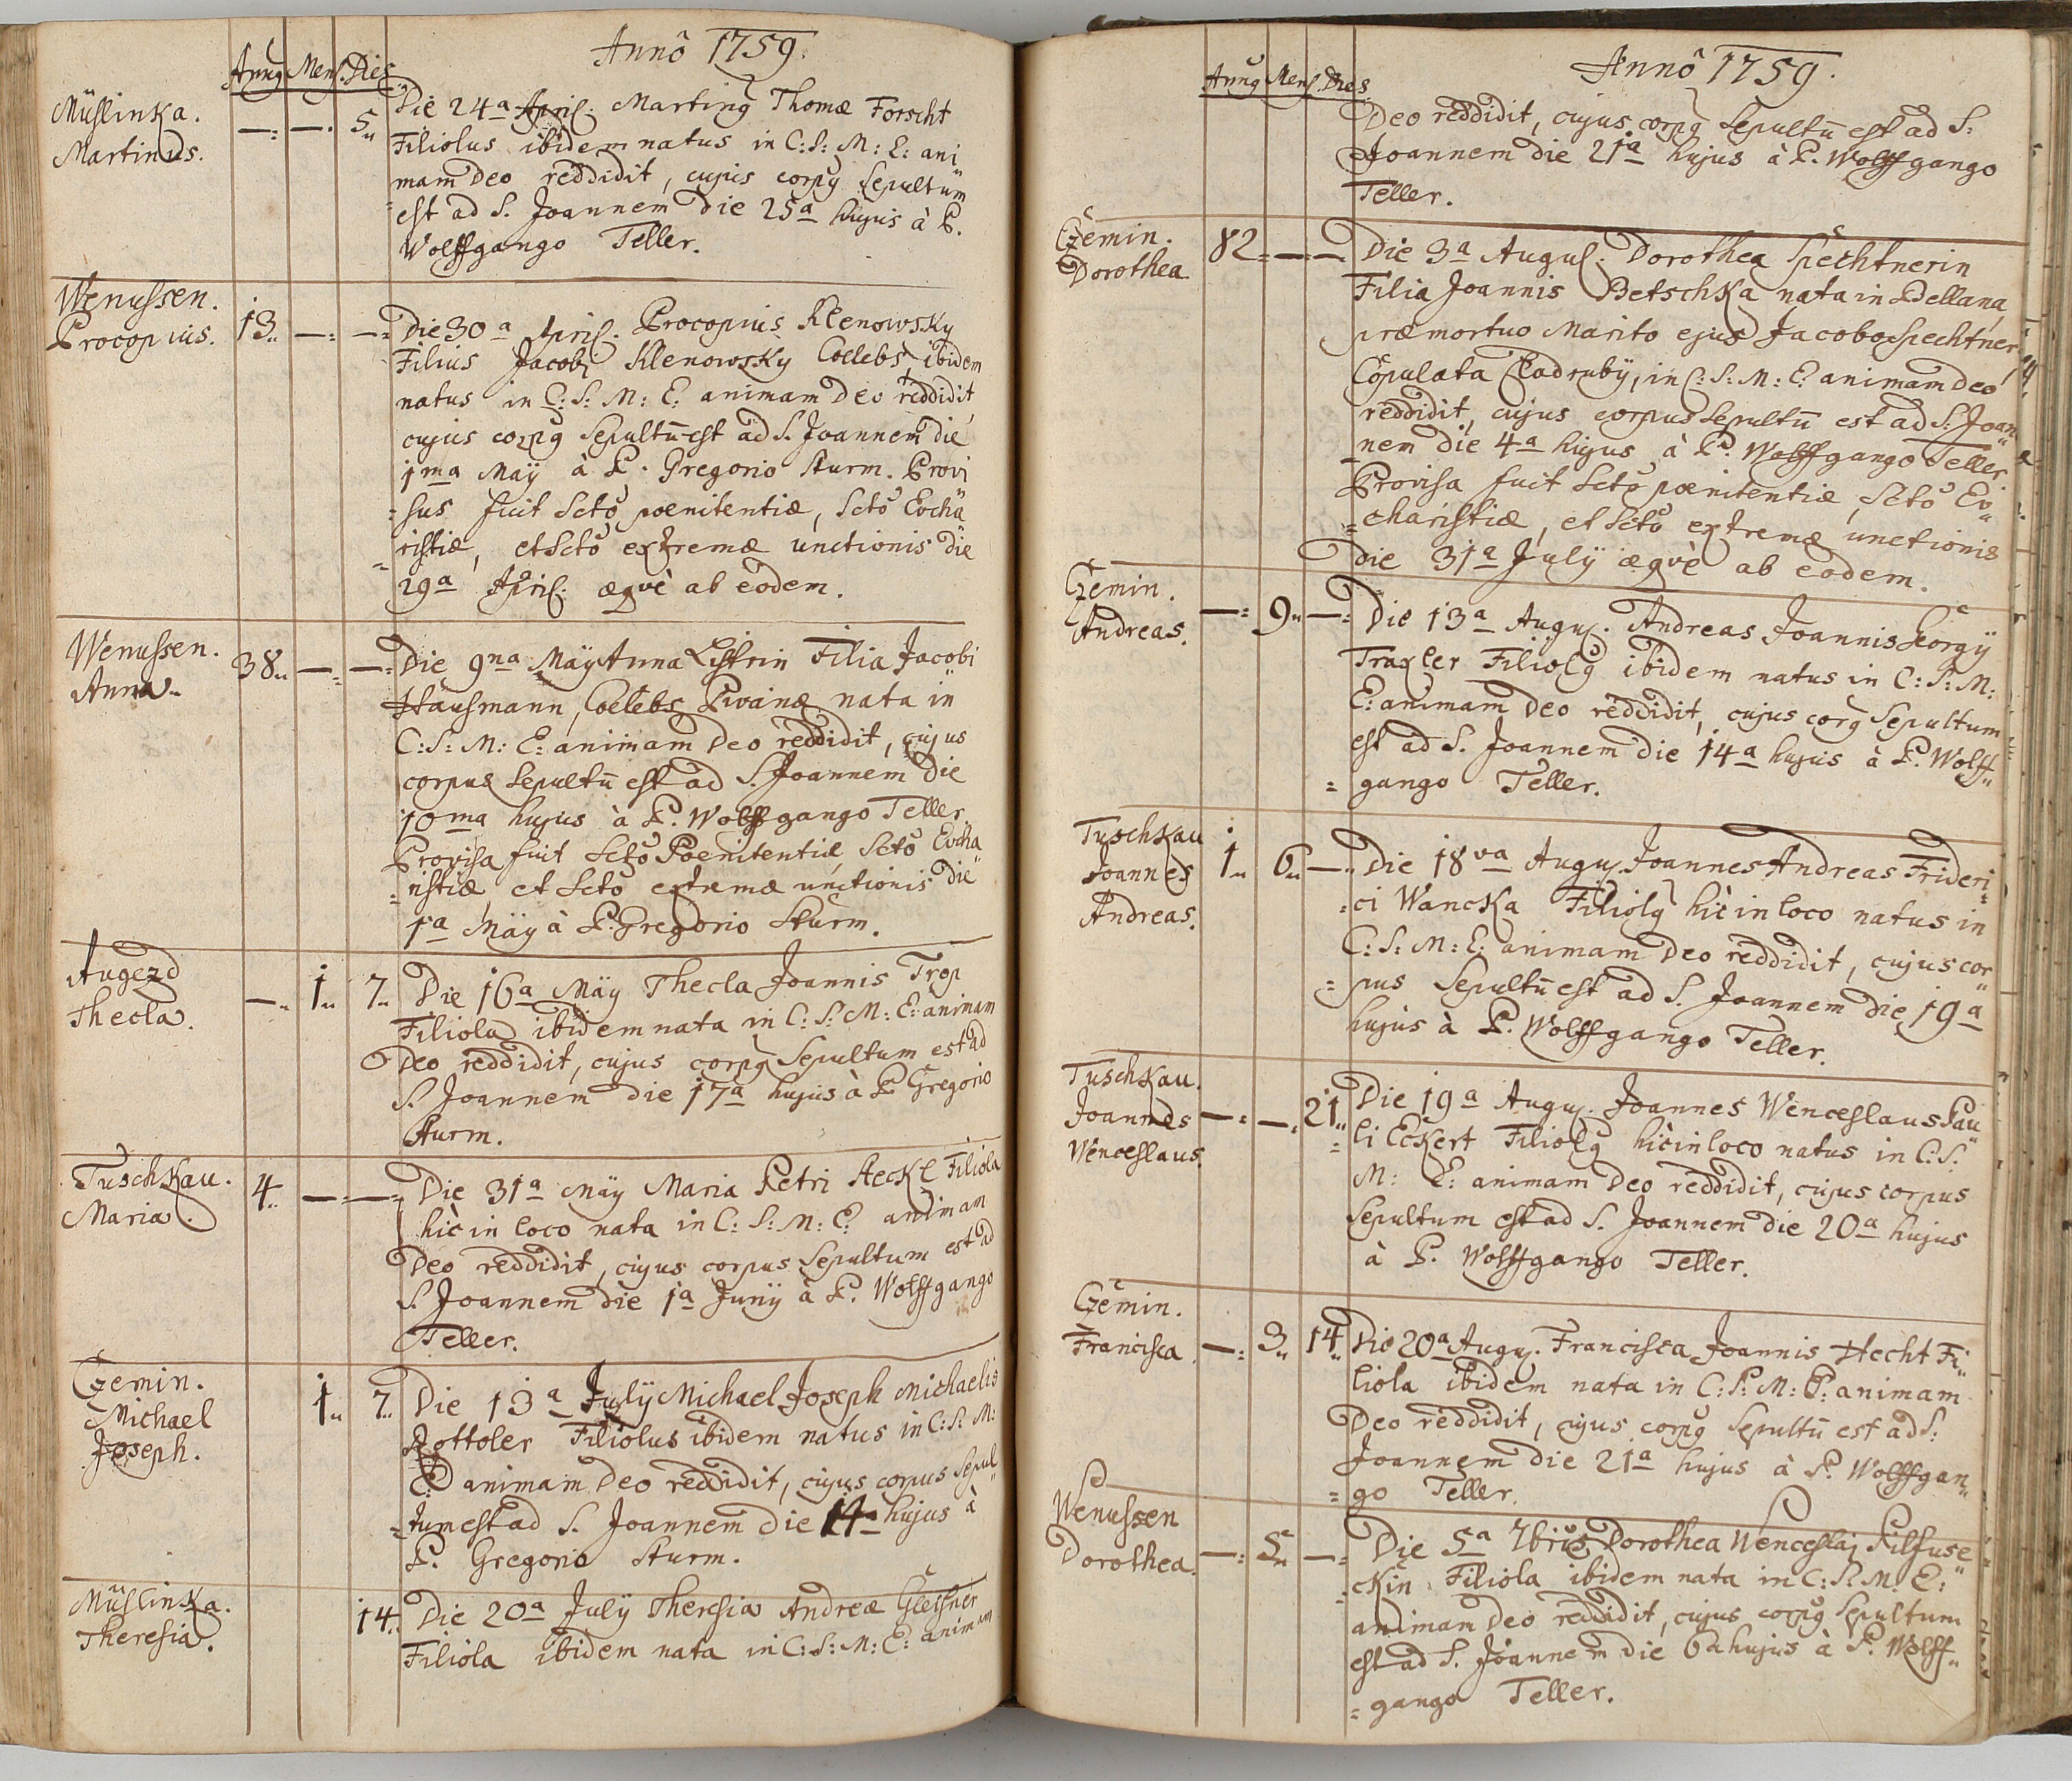 Anno 1759.
Annus Mens. Dies
Müslinka.
Martinus.
—: —. 5.
Die 24a April. Martinus Thomæ Forscht
Filiolus ibidem natus in C: S: M: E: ani
mam Deo reddidit, cujus corpus Sepultum
est ad S. Joannem die 25a hujus à P.
Wolffgango Teller.
Wenussen.
Procopius.
13. —: —:
Die 30a April. Procopius Klenowsky
Filius Jacobi Klenowsky Coelebs, ibidem
natus in C: S: M: E: animam Deo reddidit,
cujus corpus Sepultū est ad S. Joannem die
1ma Maÿ à P. Gregorio Sturm. Provi
=sus fuit Scto poenitentiæ, Scto Eucha
=ristiæ, et Scto extremæ unctionis die
29a April. æquè ab eodem.
Wenussen.
Anna.
38. —: —:
Die 9na Maÿ Anna Listrin Filia Jacobi
Hausmann, Coelebs Pivanæ nata in
C: S: M: E: animam Deo reddidit, cujus
corpus Sepultū est ad S. Joannem die
10ma hujus à P. Wolffgango Teller.
Provisa fuit Scto Poenitentiæ, Scto Eucha
=ristiæ et Scto extremæ unctionis die
1a Maÿ à P. Gregorio Sturm.
Augezd
Thecla.
—. 1. 7.
Die 16a Maÿ Thecla Joannis Trop
Filiola ibidem nata in C: S: M: E: animam
Deo reddidit, cujus corpus Sepultum est ad
S. Joannem die 17a hujus à P. Gregorio
Sturm.
Tuschkau.
Maria.
4. —: —:
Die 31a Maÿ Maria Petri Heckl Filiola
hìc in loco nata in C: S: M: E: animam
Deo reddidit, cujus corpus Sepultum est ad
S. Joannem die 1a Junÿ à P. Wolffgango
Teller.
Czemin.
Michael
Joseph.
1. 7.
Die 13a Julÿ Michael Joseph Michaelis
Rottoler Filiolus ibidem natus in C: S: M:
E: animam Deo reddidit, cujus corpus Sepul
=tum est ad S. Joannem die 14a hujus à
P. Gregorio Sturm.
Müslinka.
Theresia.
14.
Die 20a Julÿ Theresia Andreæ Gleisner
Filiola ibidem nata in C: S: M: E: animam
Anno 1759.
Annus Mens. Dies
Deo reddidit, cujus corpus Sepultū est ad S:
Joannem die 21a hujus à P. Wolffgango
Teller.
Czemin.
Dorothea
82= —= —.
Die 3a Augus. Dorothea Spechtnerin
Filia Joannis Betschka nata in Dellana,
præmortuo Marito ejus Jacobo Spechtner,
Copulata Cladrubÿ, in C: S: M: E: animam Deo
reddidit, cujus corpus Sepultū est ad S: Joan
=nem die 4a hujus à P. Wolffgango Teller.
Provisa fuit Scto poenitentiæ, Scto Eu
=charistiæ, et Scto extremæ unctionis
die 31a Julÿ æquè ab eodem.
Czemin.
Andreas.
—: 9. —:
Die 13a Augus. Andreas Joannis Georgÿ
Traxler Filiolus ibidem natus in C: S: M:
E: animam Deo reddidit, cujus corpus Sepultum
est ad S. Joannem die 14a hujus à P. Wolff
=gango Teller.
Tuschkau
Joannes
Andreas.
1. 6. —.
Die 18va Augus. Joannes Andreas Frideri
=ci Wancka Filiolus hìc in loco natus in
C: S: M: E: animam Deo reddidit, cujus cor
=pus Sepultū est ad S. Joannem die 19a
hujus à P. Wolffgango Teller.
Tuschkau.
Joannes
Wenceslaus.
—: —: 21.
Die 19a Augus. Joannes Wenceslaus Pau
=li Eckert Filiolus hìc in loco natus in C: S:
M: E: animam Deo reddidit, cujus corpus
Sepultum est ad S. Joannem die 20a hujus
à P. Wolffgango Teller.
Czemin.
Francisca.
—: 3. 14.
Die 20a Augus. Francisca Joannis Hecht Fi
liola ibidem nata in C: S: M: E: animam
Deo reddidit, cujus corpus Sepultū est ad S:
Joannem die 21a hujus à P. Wolffgan
=go Teller.
Wenussen
Dorothea.
—: 5. —:
Die 5a 7bris Dorothea Wenceslai Pilsuse
=ckin Filiola ibidem nata in C: S: M: E:
animam Deo reddidit, cujus corpus Sepultum
est ad S. Joannem die 6a hujus à P. Wolff
=gango Teller.